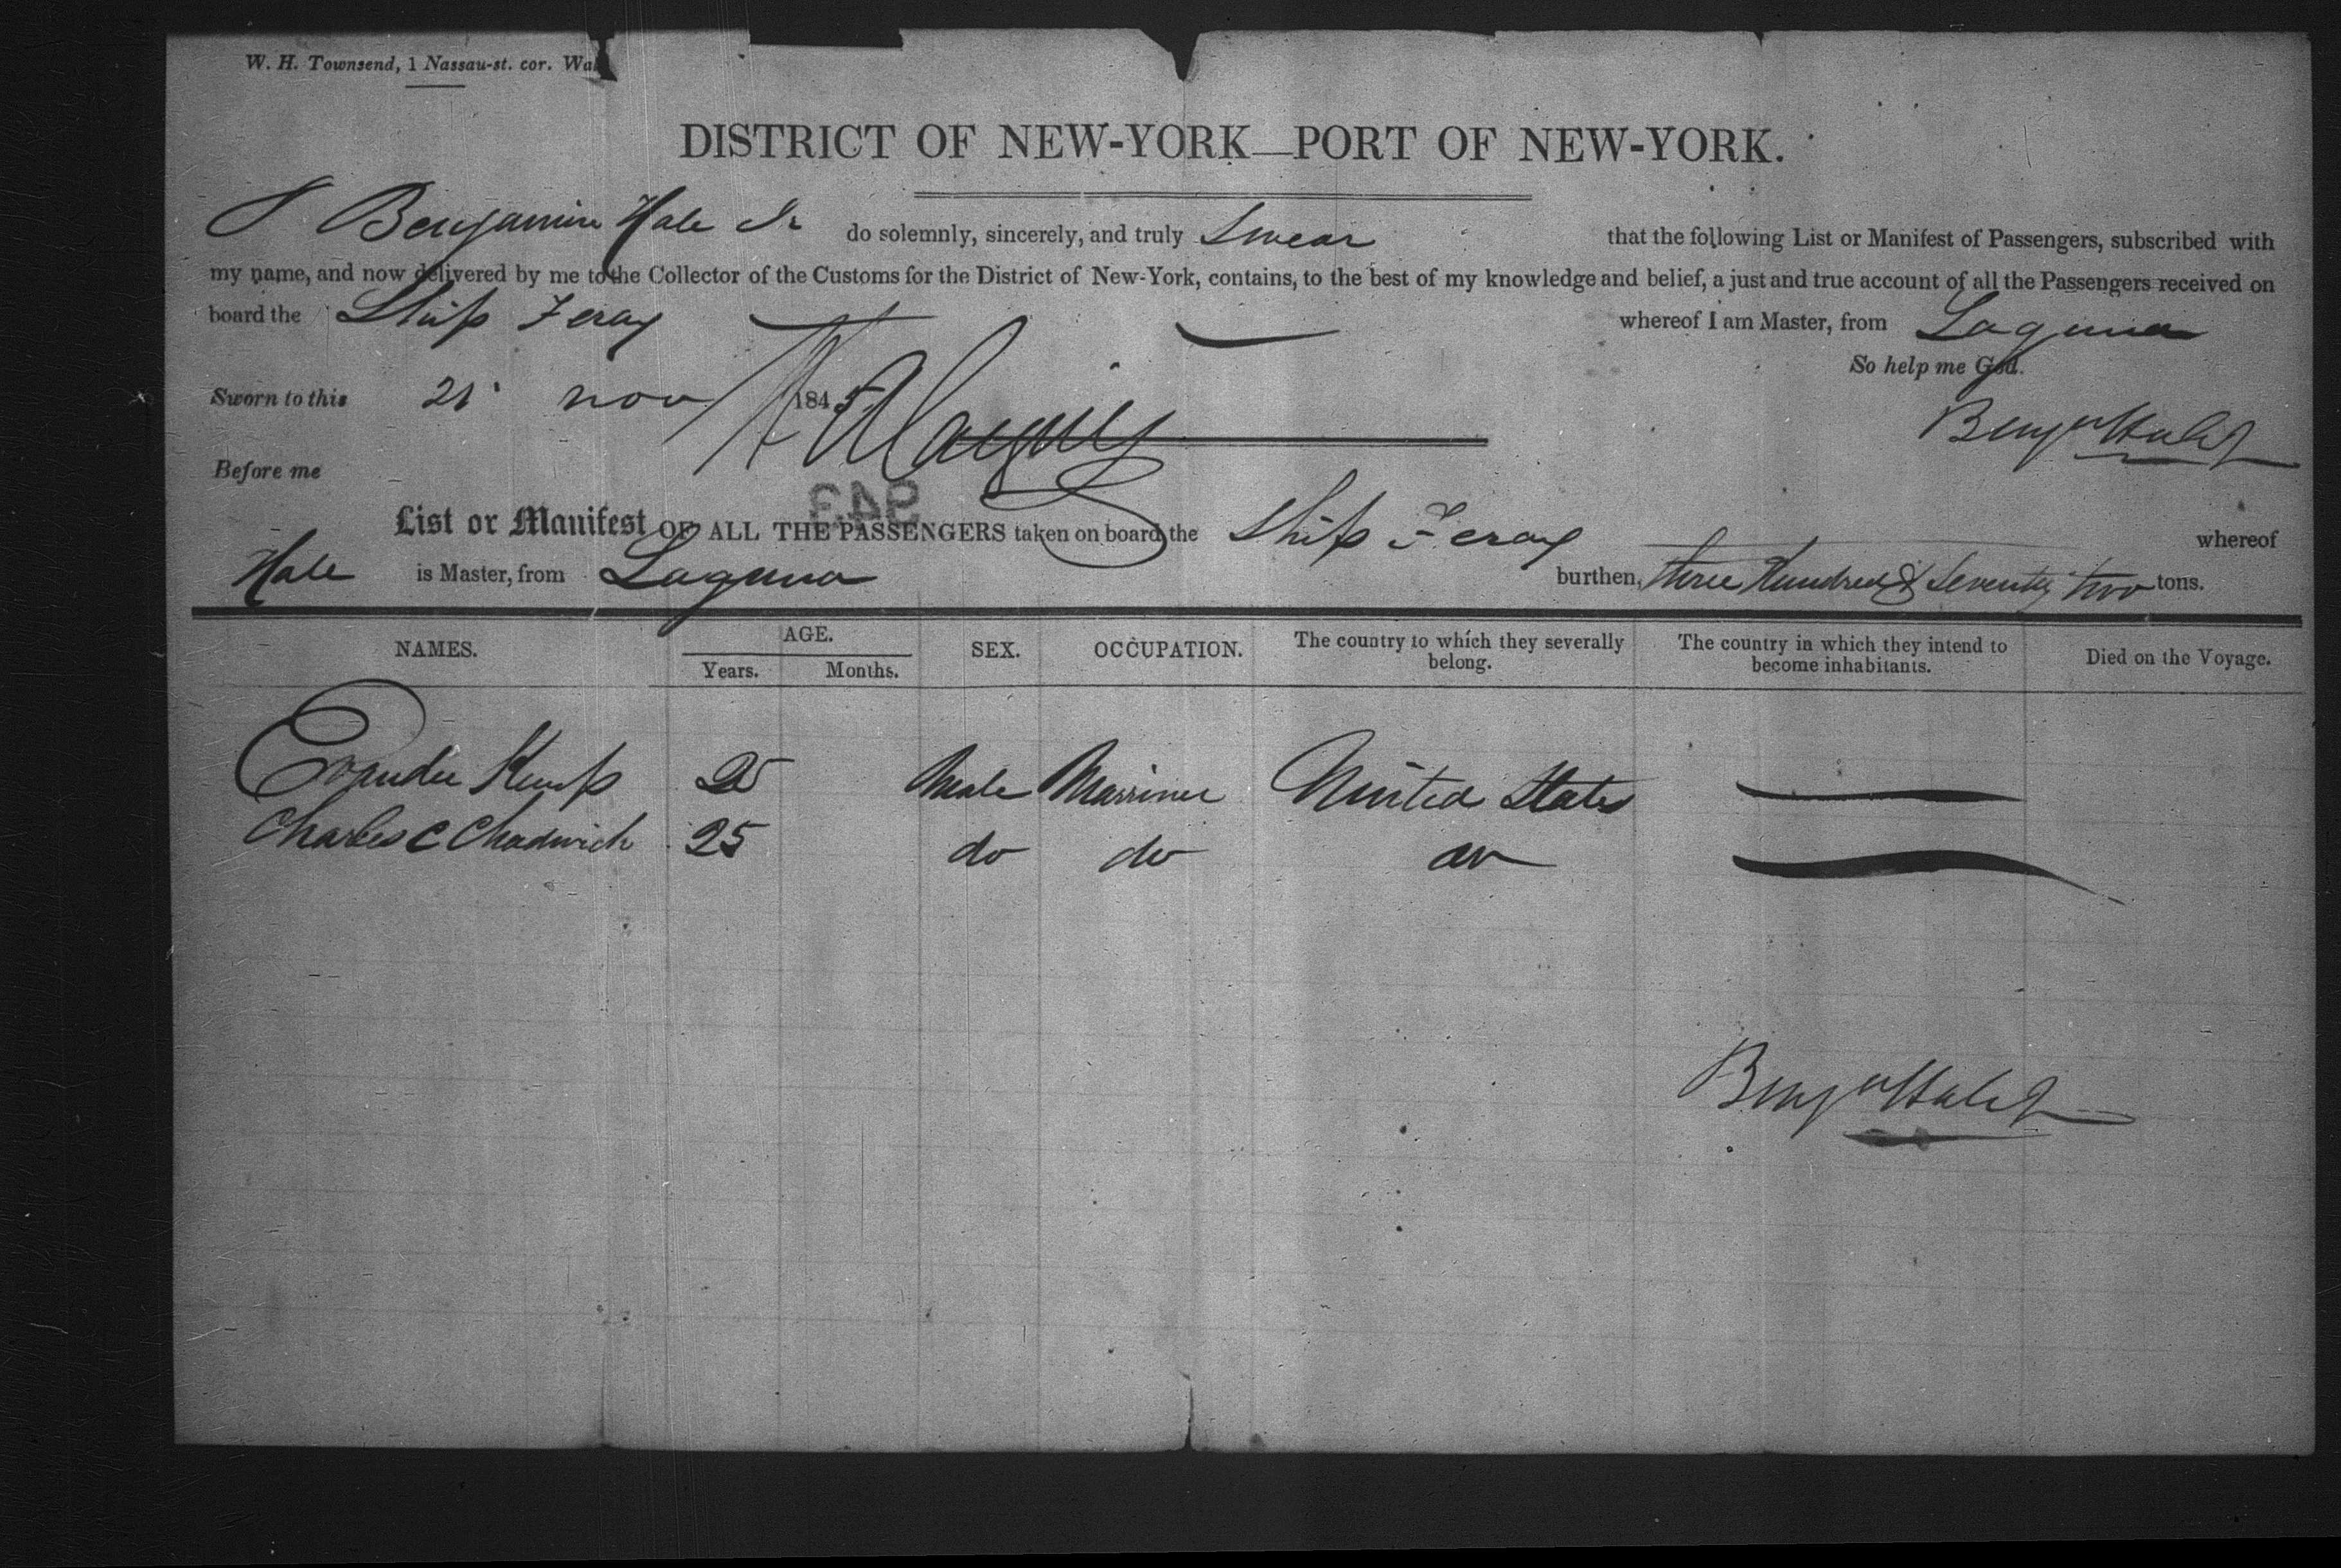 W. H. Townsend, 1 Nassau-st. cor. Wal
DISTRICT OF NEW-YORK—PORT OF NEW-YORK.
I Benjamin Hale Jr do solemnly, sincerely, and truly Swear that the following List or Manifest of Passengers, subscribed with
my name, and now delivered by me to the Collector of the Customs for the District of New-York, contains, to the best of my knowledge and belief, a just and true account of all the Passengers received on
board the Ship Feray whereof I am Master, from Laguna
So help me God.
Sworn to this 21 nov 1845
Benjn Hale Jr
Before me
943
List or Manifest OF ALL THE PASSENGERS taken on board the Ship Feray whereof
Hale is Master, from Laguna burthen, three Hundred & Seventy two tons.
NAMES. AGE. SEX. OCCUPATION. The country to which they severally belong. The country in which they intend to become inhabitants. Died on the Voyage.
Years. Months.
Evander Kemp 25 Male Marriner United States
Charles C Chadwick 25 do do do
Benjn Hale Jr